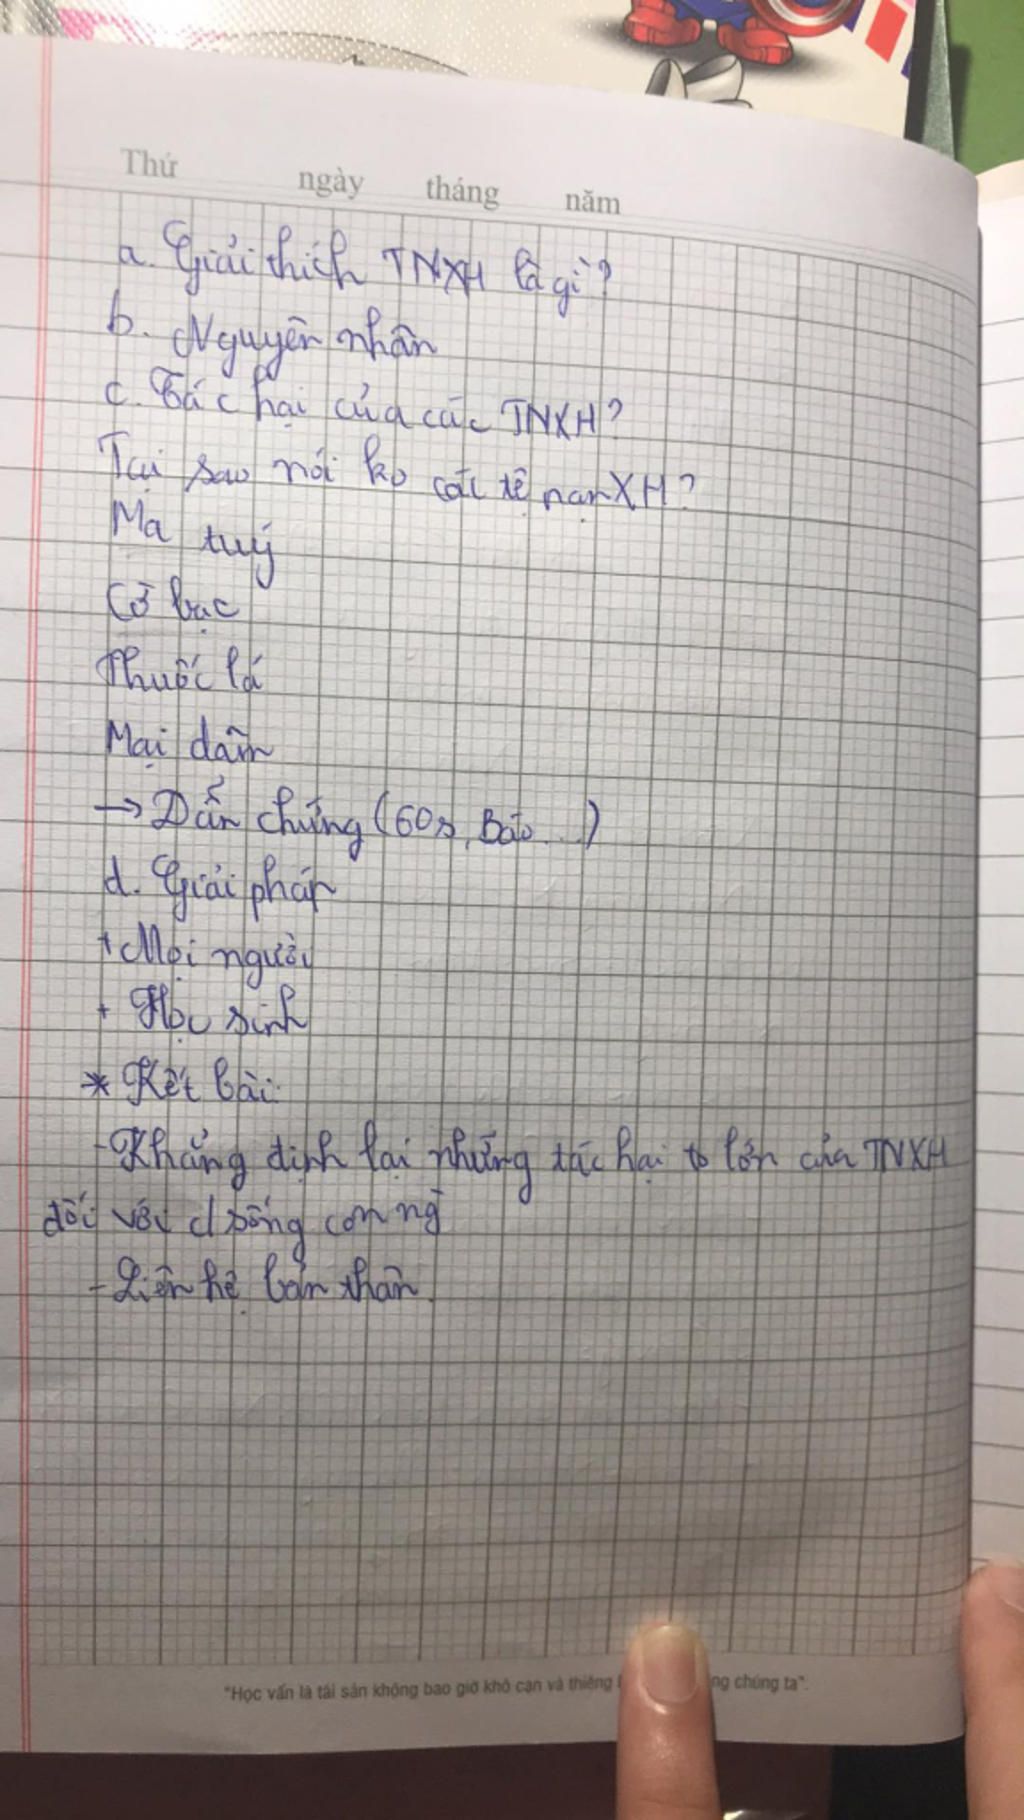 Thứ ngày tháng năm
a. Giải thích TNXH là gì?
b. Nguyên nhân
c. Tác hại của các TNXH?
Tại sao nói ko các tệ nạn XH?
Ma tuý
Cờ bạc
Thuốc lá
Mại dâm
→ Dẫn chứng (60s, Báo...)
d. Giải pháp
+ Mọi người
+ Học sinh
* Kết bài:
- Khẳng định lại những tác hại to lớn của TNXH
đối với d sống con ng
- Liên hệ bản thân.
"Học vấn là tài sản không bao giờ khô cạn và thiêng ng chúng ta".